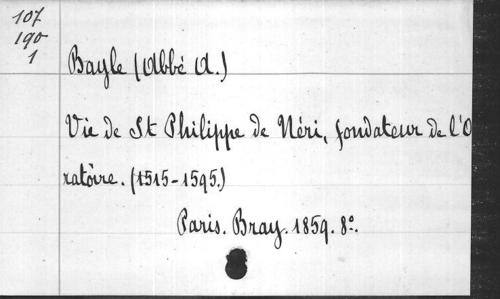 107
190
1
Bayle (Abbé A.)
Vie de St Philippe de Néri, fondateur de l'O
ratoire. (1515-1595.)
Paris. Bray. 1859. 8º.